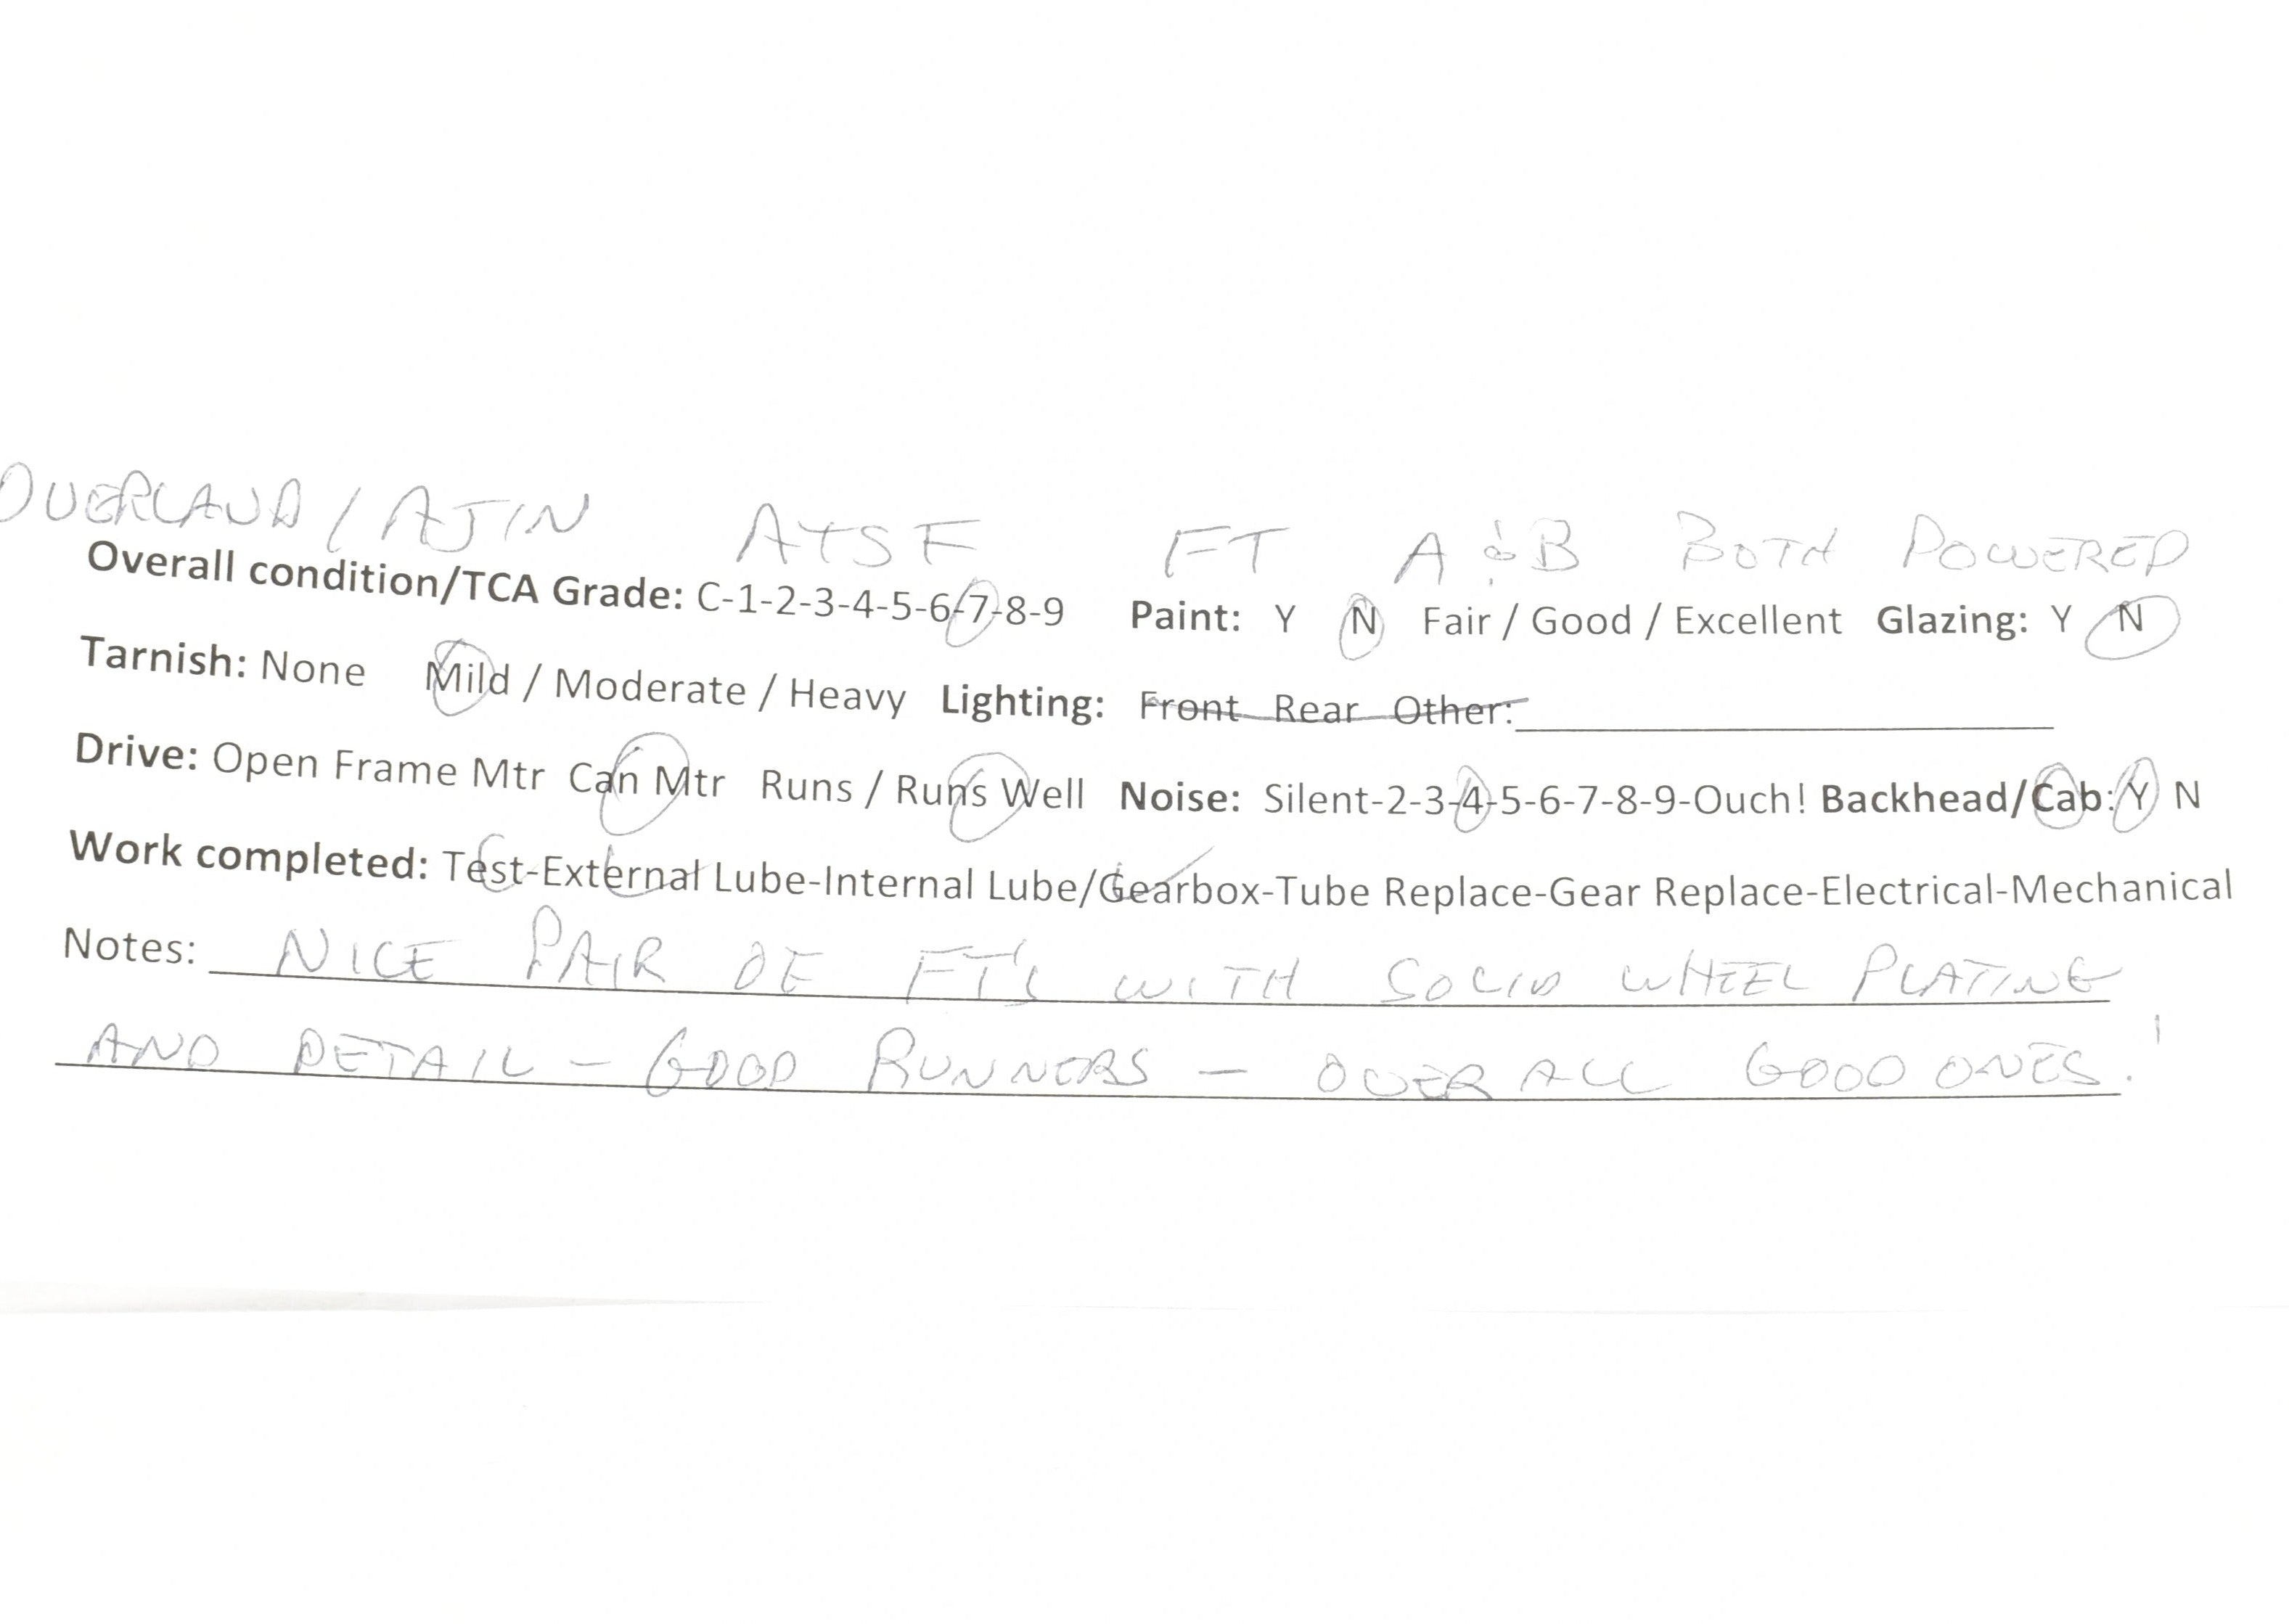 OVERLAND / AJIN ATSF FT A & B BOTH POWERED
Overall condition/TCA Grade: C-1-2-3-4-5-6-7-8-9 Paint: Y N Fair / Good / Excellent Glazing: Y N
Tarnish: None Mild / Moderate / Heavy Lighting: Front Rear Other:
Drive: Open Frame Mtr Can Mtr Runs / Runs Well Noise: Silent-2-3-4-5-6-7-8-9-Ouch! Backhead/Cab: Y N
Work completed: Test-External Lube-Internal Lube/Gearbox-Tube Replace-Gear Replace-Electrical-Mechanical
Notes: NICE PAIR OF FT'S WITH SOLID WHEEL PLATING
AND DETAIL - GOOD RUNNERS - OVER ALL GOOD ONES!